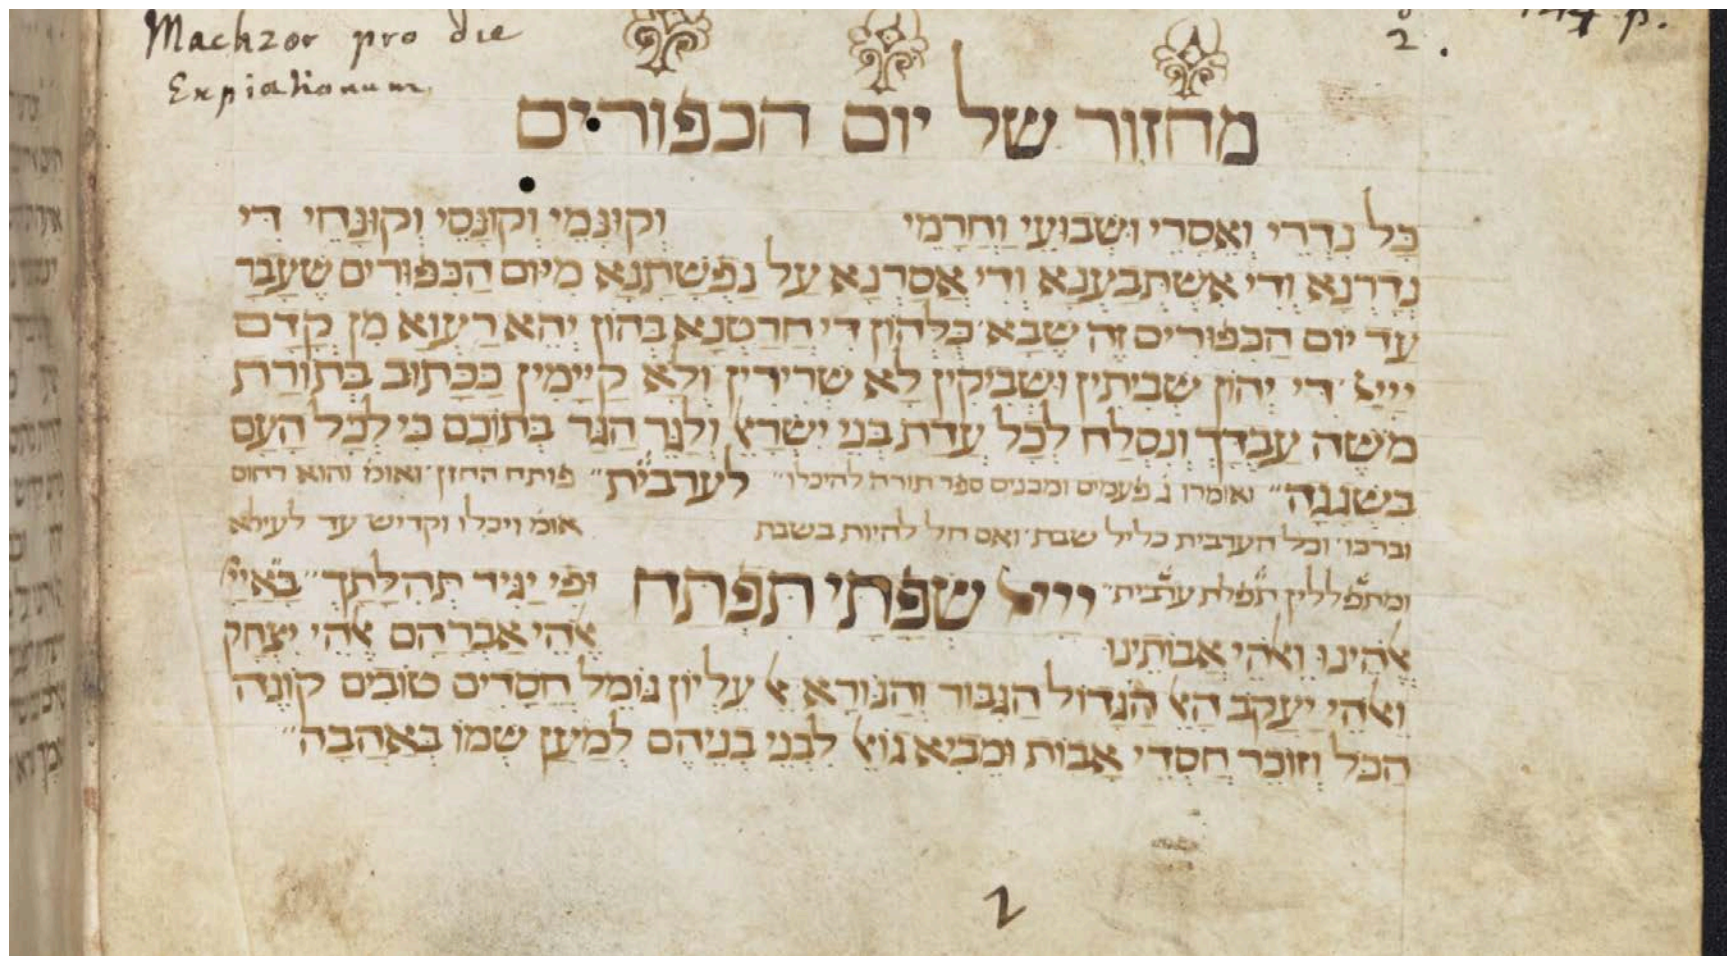 Machzor pro die
Expiationum
2.
מחזור של יום הכפורים
כָּל נִדְרֵי וְאֵסָרֵי וּשְׁבוּעֵי וַחֲרָמֵי וְקוּנָּמֵי וְקוּנָּסֵי וְקוּנָּחֵי דִּי
נְדַרְנָא וְדִי אִשְׁתְּבַעְנָא וְדִי אֲסַרְנָא עַל נַפְשָׁתָנָא מִיּוֹם הַכִּפּוּרִים שֶׁעָבַר
עַד יוֹם הַכִּפּוּרִים זֶה שֶׁבָּא כֻּלְּהוֹן דִּי חֲרַטְנָא בְּהוֹן יְהֵא רַעֲוָא מִן קֳדָם
יְיָ דִּי יְהוֹן שְׁבִיתִין וּשְׁבִיקִין לָא שְׁרִירִין וְלָא קַיָּימִין כַּכָּתוּב בְּתוֹרַת
מֹשֶׁה עַבְדָּךְ וְנִסְלַח לְכָל עֲדַת בְּנֵי יִשְׂרָאֵל וְלַגֵּר הַגָּר בְּתוֹכָם כִּי לְכָל הָעָם
בִּשְׁגָגָה ואומרו ג פעמים ומכניס ספר תורה להיכלו לערבית פותח החזן ואומ' והוא רחום
וברכו וכל הערבית כליל שבת ואם חל להיות בשבת אומ' ויכלו וקדיש עד לעילא
ומתפללין תפלת ערבית יְיָ שְׂפָתַי תִּפְתָּח וּפִי יַגִּיד תְּהִלָּתֶךָ בָּ"אַ"יְיָ
אֱלֹהֵינוּ וֵאלֹהֵי אֲבוֹתֵינוּ אֱלֹהֵי אַבְרָהָם אֱלֹהֵי יִצְחָק
וֵאלֹהֵי יַעֲקֹב הָאֵל הַגָּדוֹל הַגִּבּוֹר וְהַנּוֹרָא אֵל עֶלְיוֹן גּוֹמֵל חֲסָדִים טוֹבִים קוֹנֵה
הַכֹּל וְזוֹכֵר חַסְדֵי אָבוֹת וּמֵבִיא גוֹאֵל לִבְנֵי בְנֵיהֶם לְמַעַן שְׁמוֹ בְּאַהֲבָה
2